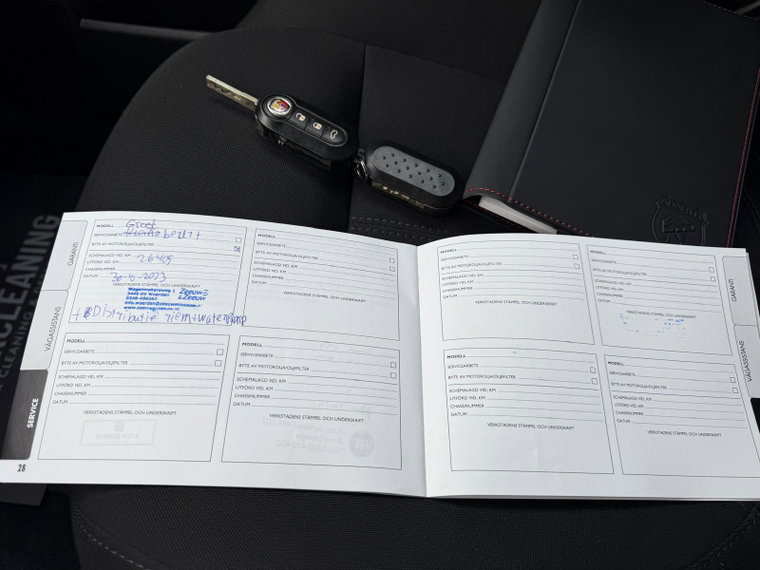 GARANTI
VÄGASSISTANS
SERVICE
28
MODELL Groot
Kleine beurt
SERVICEARBETE
BYTE AV MOTOROLJA/OLJEFILTER
SCHEMALAGD VID, KM 26409
UTFÖRD VID, KM
CHASSINUMMER
DATUM 30-5-2023
VERKSTADENS STÄMPEL OCH UNDERSKRIFT
Wagenmakersweg 1
3449 HV Woerden
Zeeuw
& Zeeuw
+ Distributie riem + waterpomp
MODELL
SERVICEARBETE
BYTE AV MOTOROLJA/OLJEFILTER
SCHEMALAGD VID, KM
UTFÖRD VID, KM
CHASSINUMMER
DATUM
VERKSTADENS STÄMPEL OCH UNDERSKRIFT
MODELL
SERVICEARBETE
BYTE AV MOTOROLJA/OLJEFILTER
SCHEMALAGD VID, KM
UTFÖRD VID, KM
CHASSINUMMER
DATUM
VERKSTADENS STÄMPEL OCH UNDERSKRIFT
MODELL
SERVICEARBETE
BYTE AV MOTOROLJA/OLJEFILTER
SCHEMALAGD VID, KM
UTFÖRD VID, KM
CHASSINUMMER
DATUM
VERKSTADENS STÄMPEL OCH UNDERSKRIFT
MODELL
SERVICEARBETE
BYTE AV MOTOROLJA/OLJEFILTER
SCHEMALAGD VID, KM
UTFÖRD VID, KM
CHASSINUMMER
DATUM
VERKSTADENS STÄMPEL OCH UNDERSKRIFT
MODELL
SERVICEARBETE
BYTE AV MOTOROLJA/OLJEFILTER
SCHEMALAGD VID, KM
UTFÖRD VID, KM
CHASSINUMMER
DATUM
VERKSTADENS STÄMPEL OCH UNDERSKRIFT
MODELL
SERVICEARBETE
BYTE AV MOTOROLJA/OLJEFILTER
SCHEMALAGD VID, KM
UTFÖRD VID, KM
CHASSINUMMER
DATUM
VERKSTADENS STÄMPEL OCH UNDERSKRIFT
MODELL
SERVICEARBETE
BYTE AV MOTOROLJA/OLJEFILTER
SCHEMALAGD VID, KM
UTFÖRD VID, KM
CHASSINUMMER
DATUM
VERKSTADENS STÄMPEL OCH UNDERSKRIFT
GARANTI
VÄGASSISTANS
CLEANING